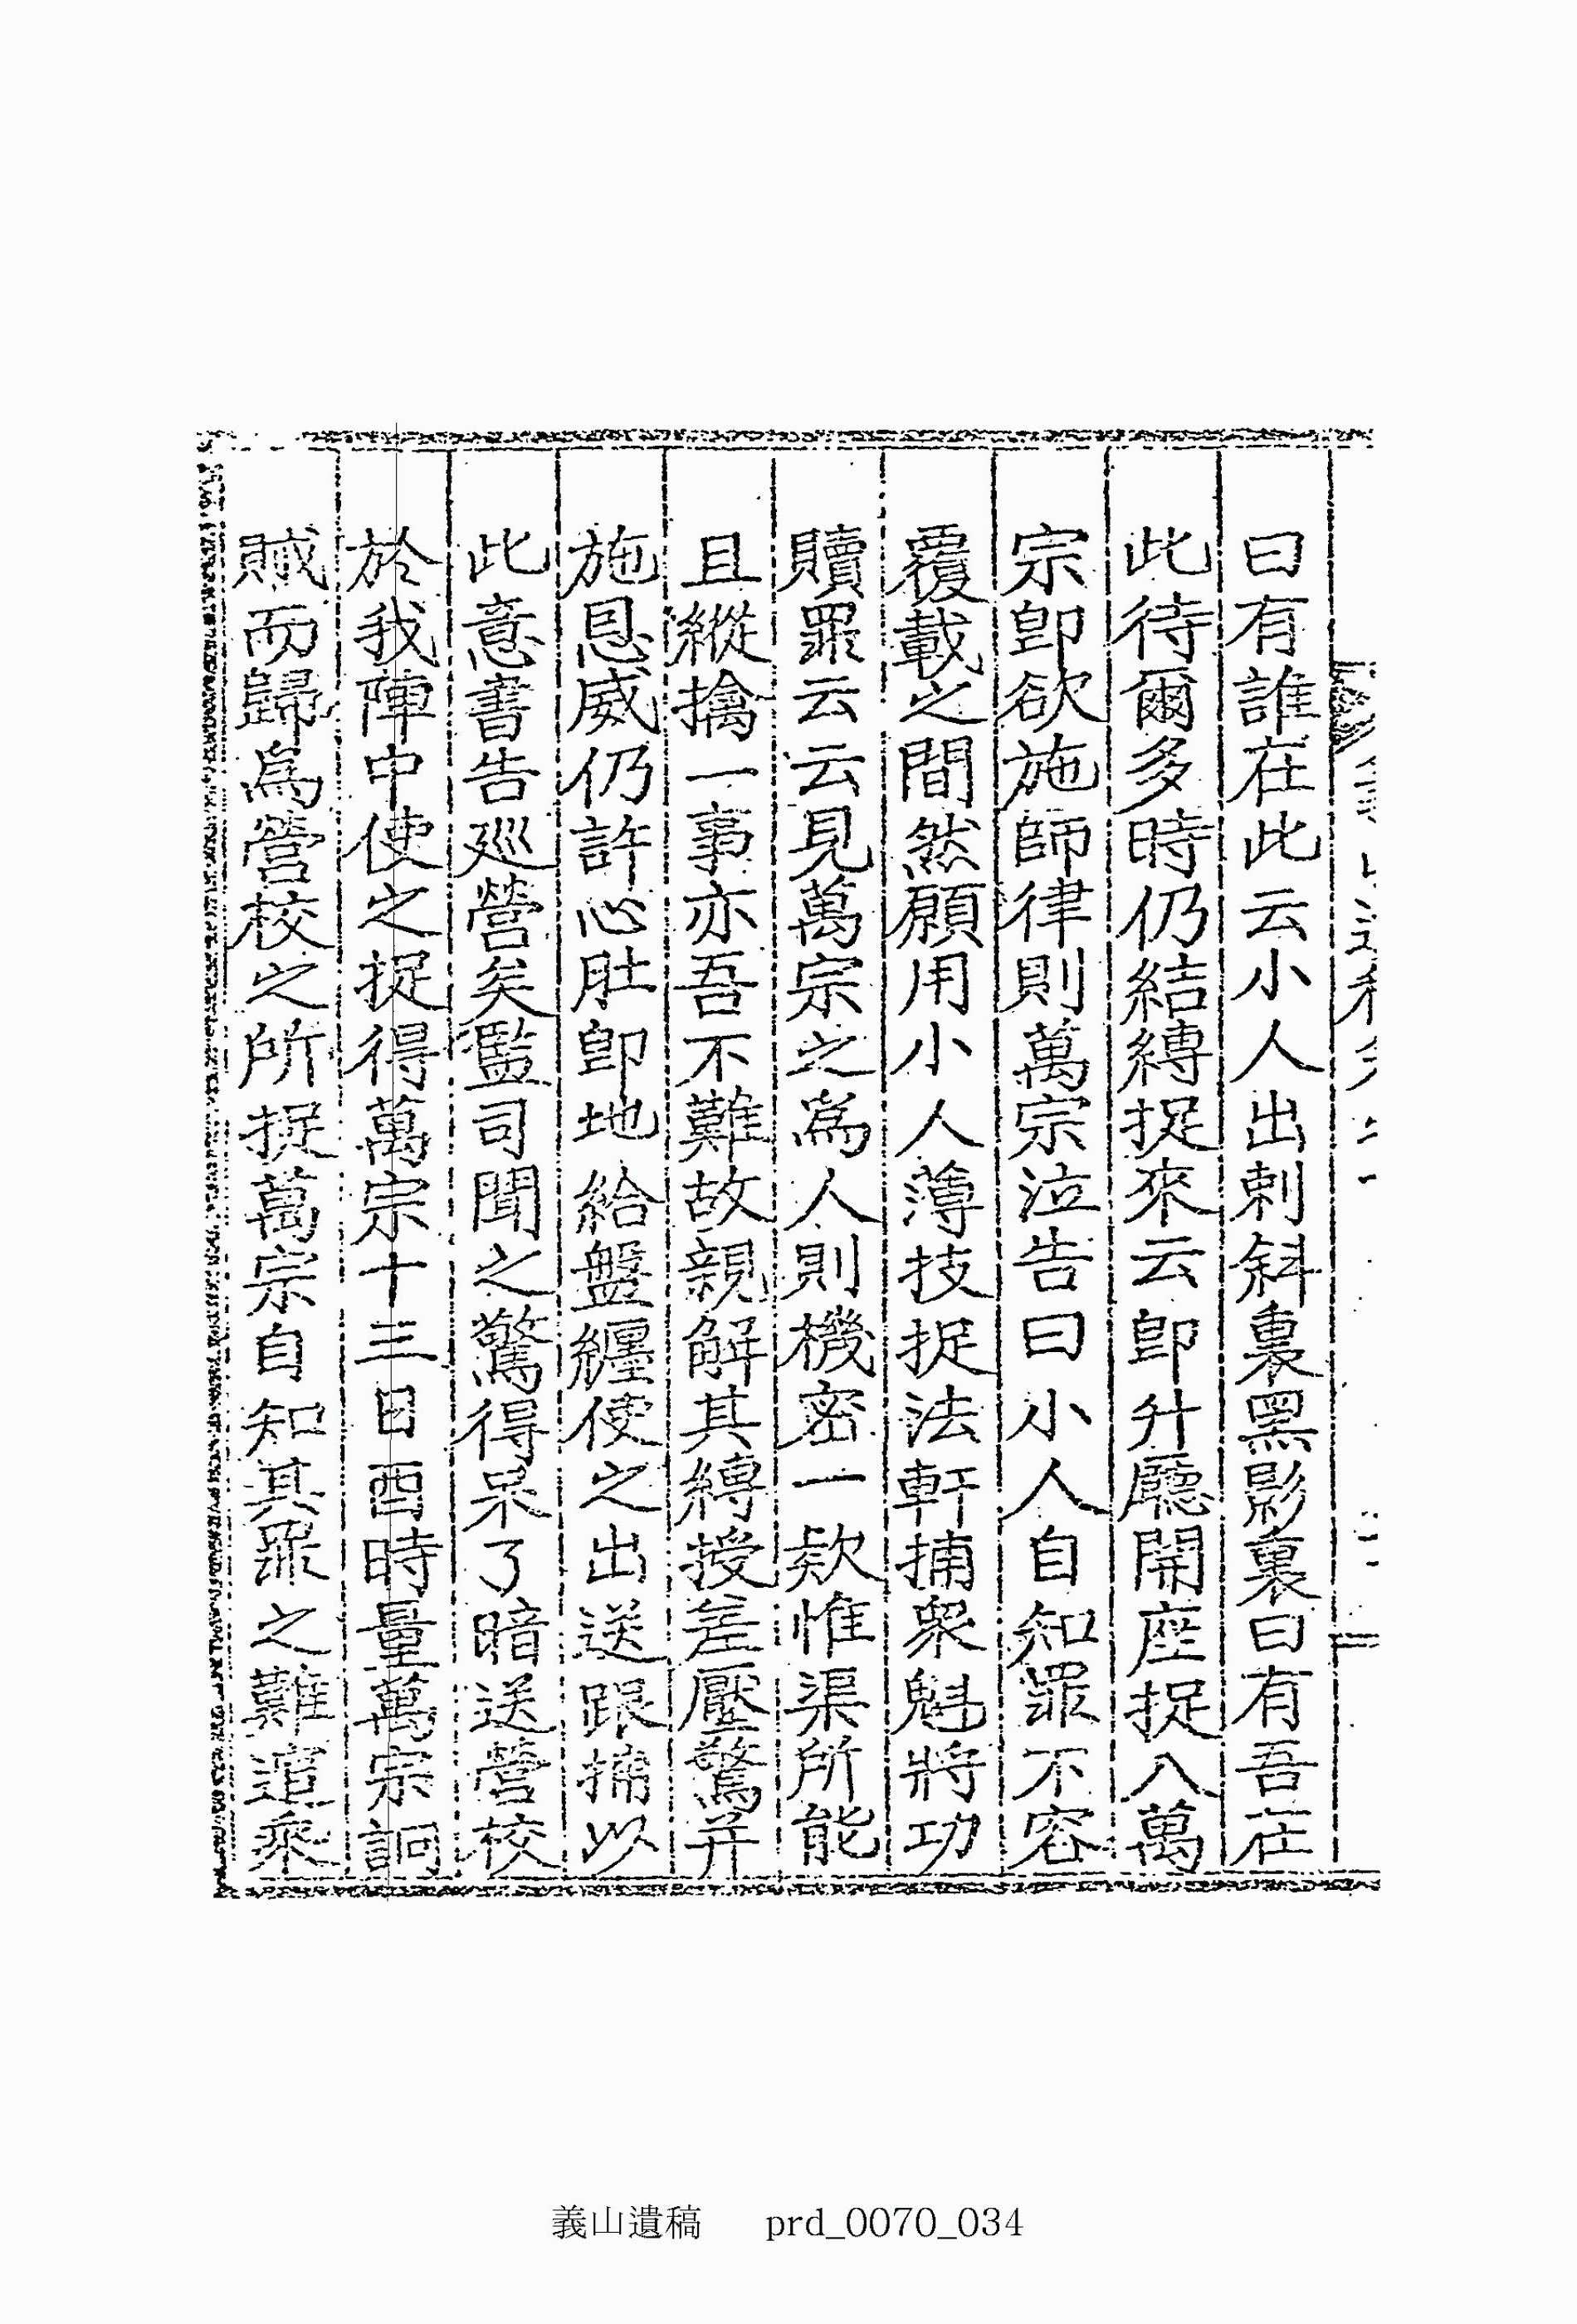 曰有誰在此云小人出刺斜裏黑影裏曰有吾在
此待爾多時仍結縛捉來云卽升廳開座捉入萬
宗卽欲施師律則萬宗泣告曰小人自知罪不容
覆載之間然願用小人薄技捉法軒捕衆魁將功
贖罪云云見萬宗之爲人則機密一欵惟渠所能
且縱擒一事亦吾不難故親解其縛授差壓驚幷
施恩威仍許心肚卽地給盤纏使之出送跟捕以
此意書告巡營矣監司聞之驚得呆了暗送營校
於我陣中使之捉得萬宗十三日酉時量萬宗詗
賊而歸爲營校之所捉萬宗自知其罪之難逭乘
義山遺稿 prd_0070_034